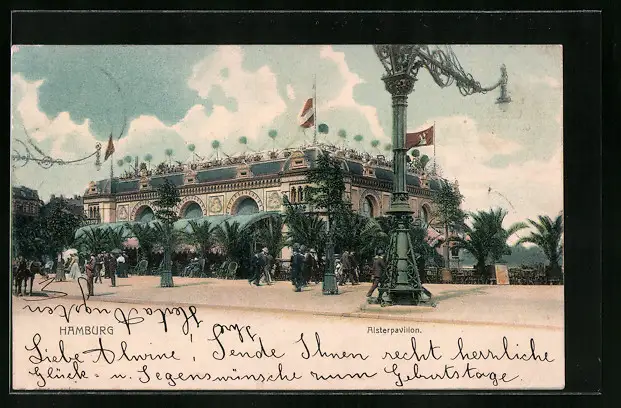 HAMBURG
Alsterpavillon.
Liebe Alwine! Sende Ihnen recht herzliche
Glück- u. Segenswünsche zum Geburtstage